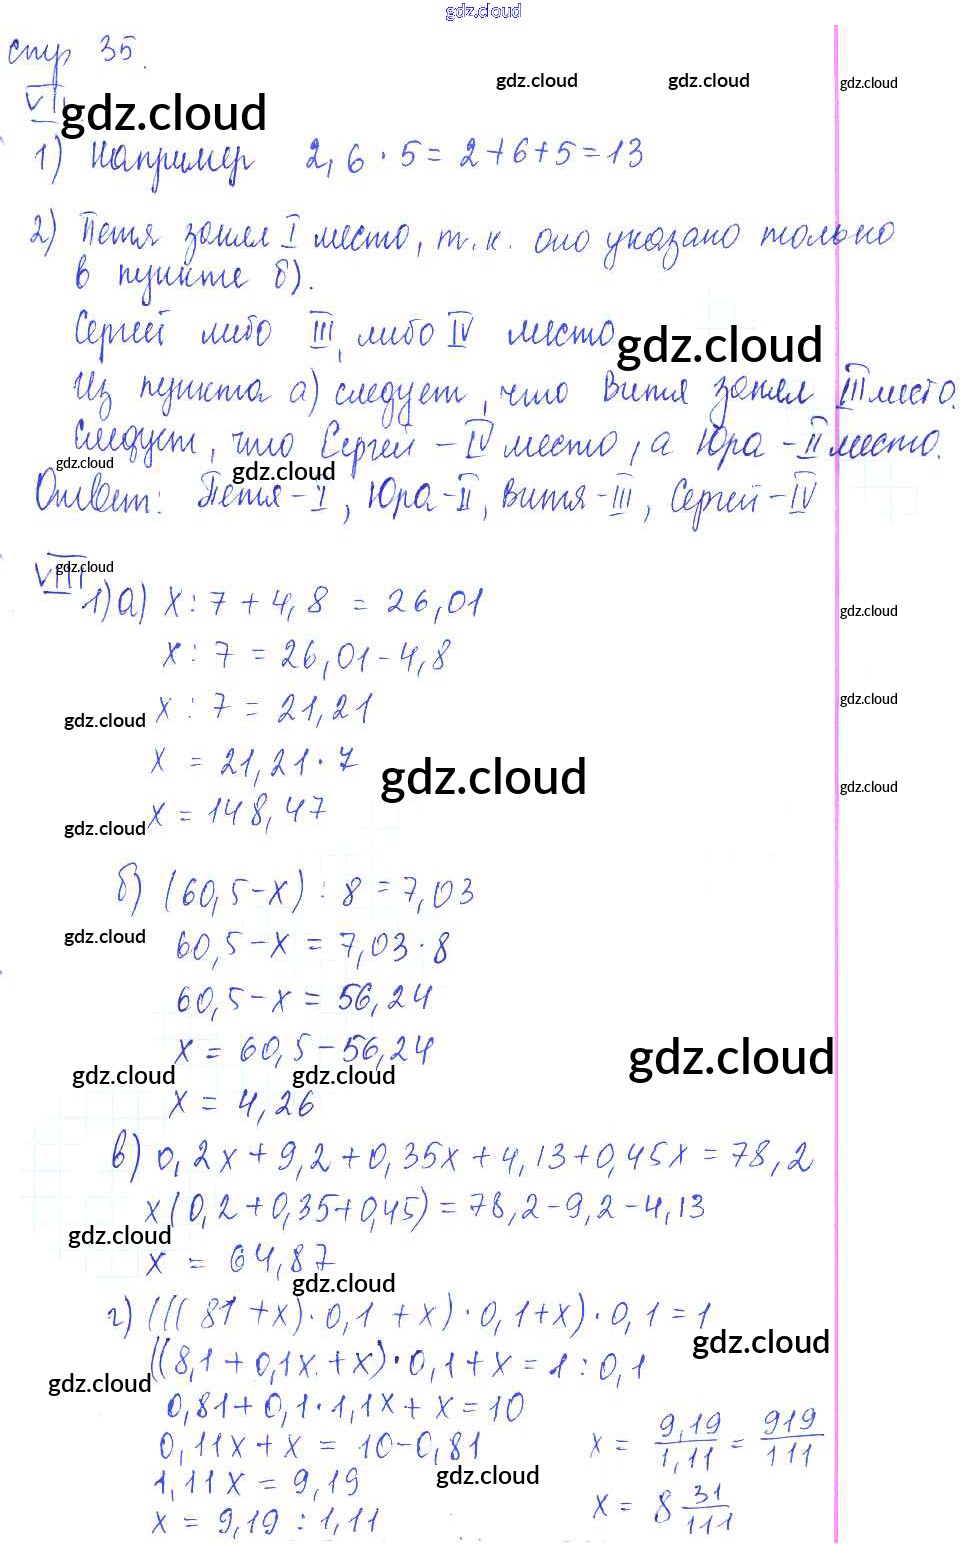 gdz.cloud
стр 35.
gdz.cloud gdz.cloud gdz.cloud
VII. gdz.cloud
1) Например 2,6 · 5 = 2+6+5=13
2) Петя занял I место, т.к. оно указано только
в пункте б).
Сергей либо III, либо IV место
gdz.cloud
Из пункта а) следует, что Витя занял III место.
следует, что Сергей - IV место, а Юра - II место.
gdz.cloud gdz.cloud
Ответ: Петя - I, Юра - II, Витя - III, Сергей - IV
VIII gdz.cloud
1) а) x : 7 + 4,8 = 26,01
gdz.cloud
x : 7 = 26,01 - 4,8
x : 7 = 21,21
gdz.cloud gdz.cloud
x = 21,21 · 7
gdz.cloud gdz.cloud
x = 148,47
gdz.cloud
б) (60,5 - x) : 8 = 7,03
60,5 - x = 7,03 · 8
gdz.cloud
60,5 - x = 56,24
x = 60,5 - 56,24
gdz.cloud
gdz.cloud gdz.cloud
x = 4,26
в) 0,2x + 9,2 + 0,35x + 4,13 + 0,45x = 78,2
x (0,2 + 0,35 + 0,45) = 78,2 - 9,2 - 4,13
gdz.cloud
x = 64,87
gdz.cloud
г) (((81 + x) · 0,1 + x) · 0,1 + x) · 0,1 = 1
gdz.cloud
((8,1 + 0,1x + x) · 0,1 + x = 1 : 0,1
gdz.cloud
0,81 + 0,1 · 1,1x + x = 10
0,11x + x = 10 - 0,81
1,11x = 9,19
gdz.cloud
x = 9,19 : 1,11
x = 9,19/1,11 = 919/111
x = 8 31/111